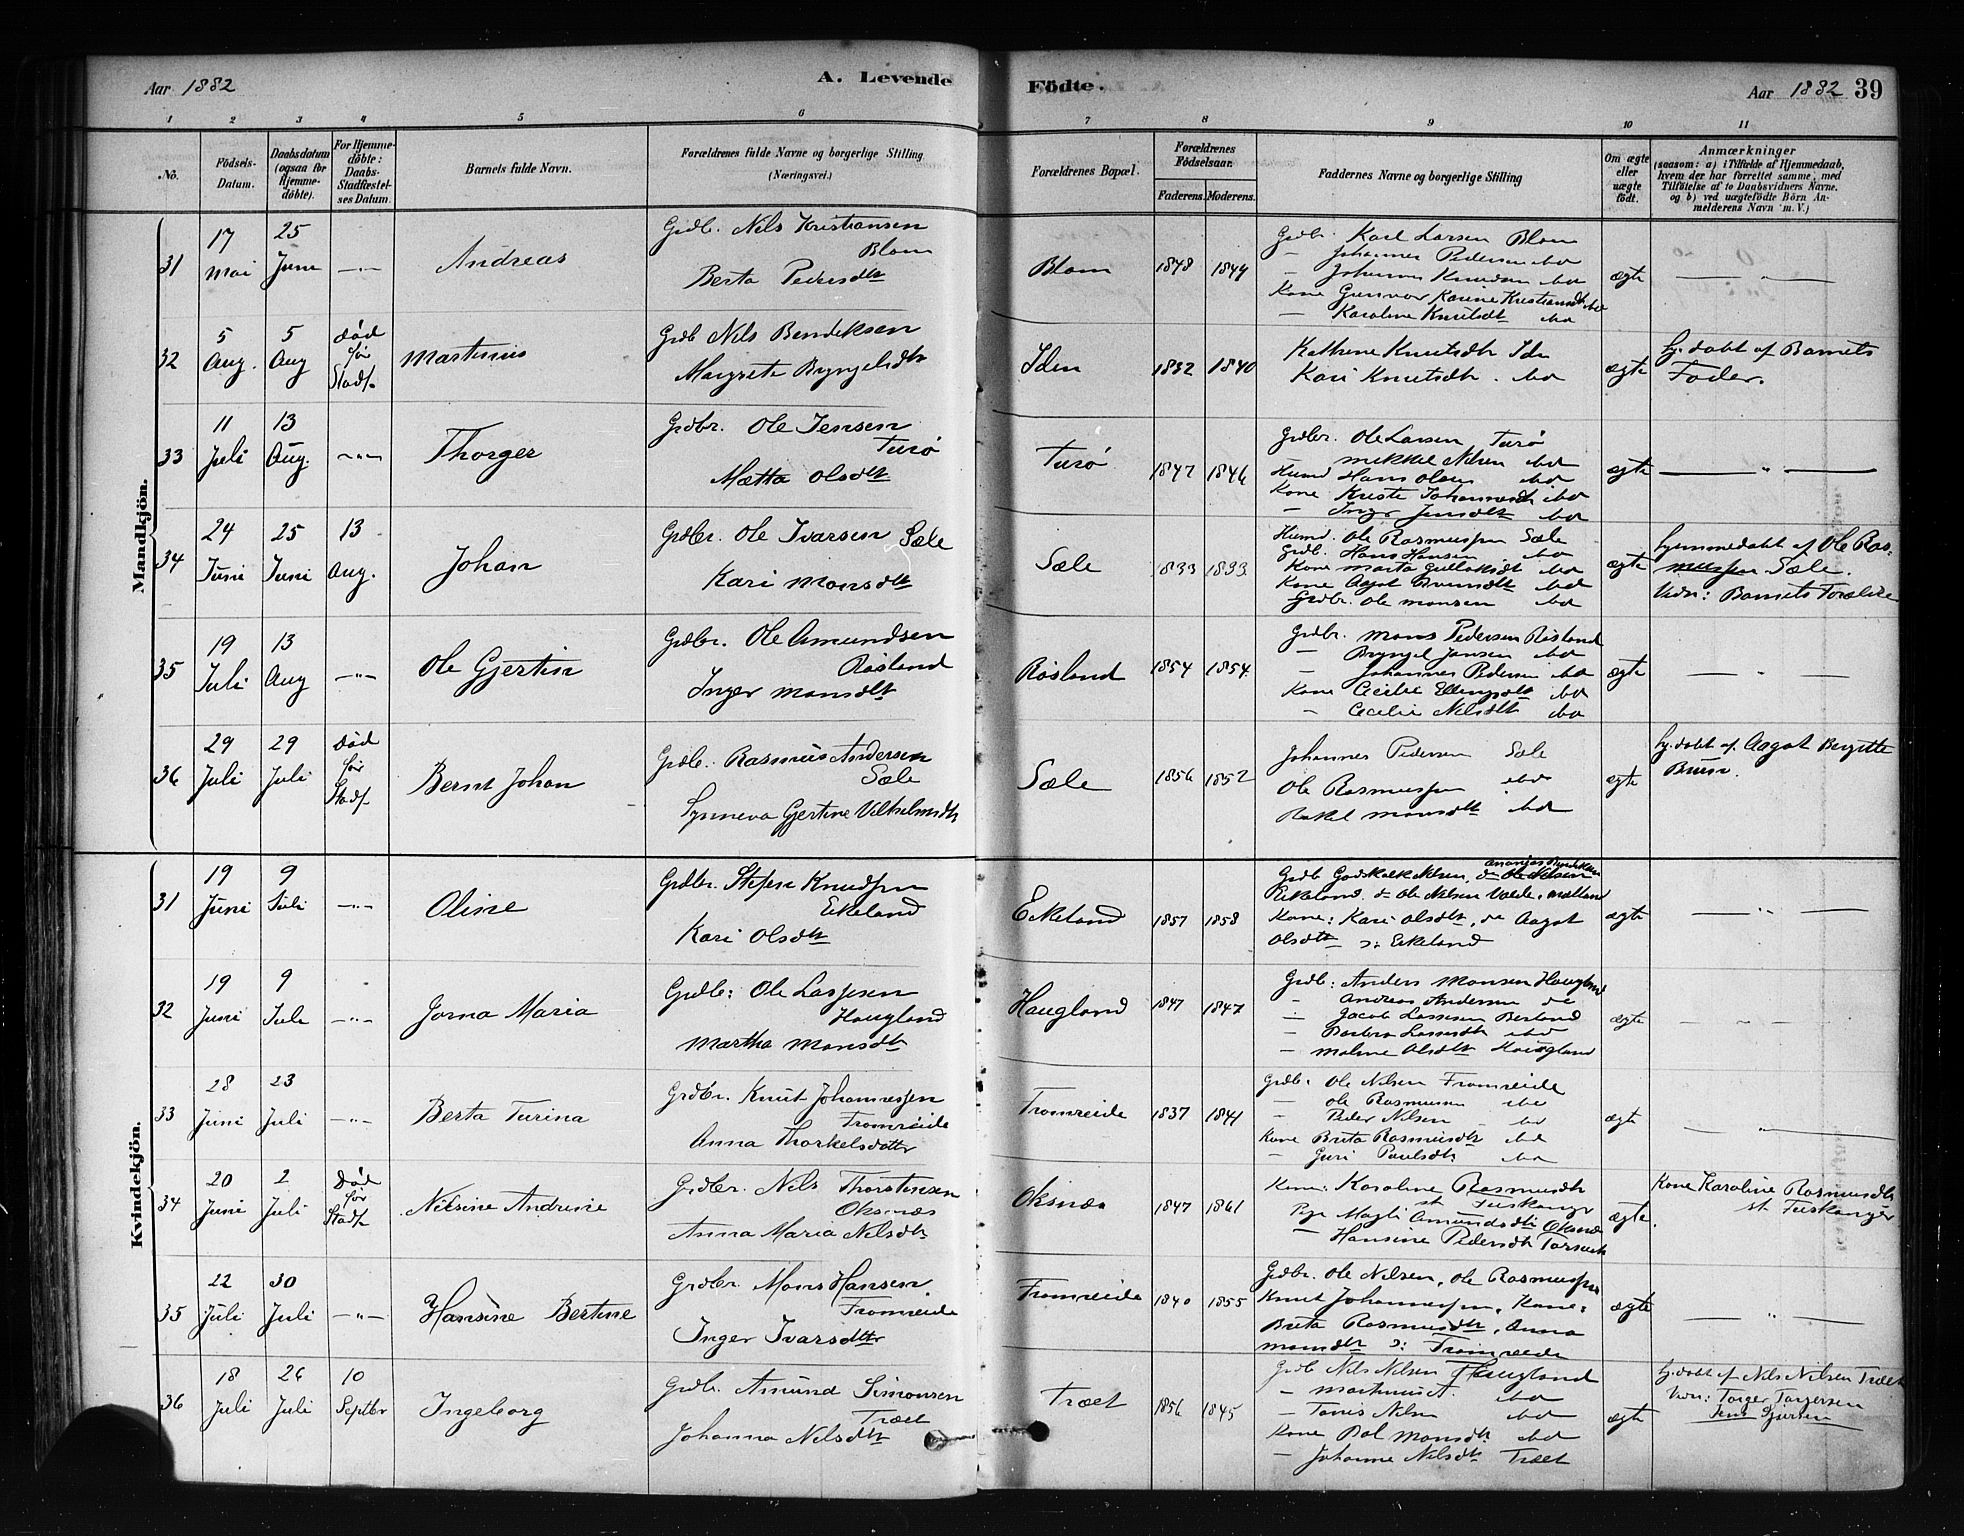 Aar 1882
A. Levende
Födte.
Aar 1882 39
1 2 3 4 5 6 7 8 9 10 11
No.
Födsels-Datum.
Daabsdatum (ogsaa for Hjemme-döbte).
For Hjemme-döbte: Daabs-Stadfæstel-ses Datum.
Barnets fulde Navn.
Forældrenes fulde Navne og borgerlige Stilling (Næringsvei).
Forældrenes Bopæl.
Forældrenes Födselsaar.
Faderens. Moderens.
Faddernes Navne og borgerlige Stilling
Om ægte eller uægte födt.
Anmærkninger
(saasom: a) i Tilfælde af Hjemmedaab,
hvem der har forrettet samme, med
Tilföielse af to Daabsvidners Navne.
og b) ved uægtefödte Börn An-
melderens Navn m. V.)
Mandkjön.
31 17 Mai 25 Juni —"— Andreas
Grdb. Nils Kristiansen
Blom
Berta Pedersdtr
Blom 1848 1849
Grdb. Karl Larsen Blom
— Johannes Pedersen ibd
— Johannes Knudsen ibd
Kone Gunvor Karine Kristiansdtr ibd
— Karoline Knutsdtr ibd
ægte — " —
32 5 Aug. 5 Aug død før Stadf. Martinus
Grdb Nils Bendiksen
Margrete Bryngelsdtr
Iden 1832 1840
Kathrine Knutsdtr Ide
Kari Knutsdtr. ibd
ægte
hj.døbt af Barnets
Fader.
33 11 Juli 13 Aug. —"— Thorger
Grdbr. Ole Jensen
Turø
Mætta Olsdtr
Turø 1847 1846
Grdbr. Ole Larsen Turø
Mikkel Nilsen ibd
Husmd Hans Olsen ibd
Kone Kriste Johannesdtr ibd
— Inger Jensdtr ibd
ægte — " —
34 24 Juni 25 Juni 13 Aug. Johan
Grdbr. Ole Ivarsen Sæle
Kari Monsdtr
Sæle 1833 1833
Husmd. Ole Rasmussen Sæle
Grdb. Hans Hansen ibd
Kone Marta Gullaksdt ibd
Kone Aagot ibd
Grdbr. Ole Monsen ibd
ægte
hjemmedøbt af Ole Ras-
mussen Sæle.
Vidn: Barnets Forældre
35 19 Juli 13 Aug —"— Ole Gjertin
Grdbr. Ole Amundsen
Røsland
Inger Monsdtr
Røsland 1854 1854
Grdbr. Mons Pedersen Røsland
— Bryngel Jansen ibd
— Johannes Pedersen ibd
Kone Cecilie Ellingsdtr ibd
— Cecilie Nilsdtr ibd
ægte — " —
36 29 Juli 29 Juli Død før Stadf Bernt Johan
Grdb. Rasmus Andersen
Sæle
Synneva Gjertine Vilhelmsdtr
Sæle 1856 1852
Johannes Pedersen Sæle
Ole Rasmussen ibd
Rakel Monsdtr ibd
ægte
hj.døbt af Aagot Birgitte
Bruun.
Kvindekjön.
31 19 Juni 9 Juli —"— Oline
Grdbr. Steffen Knudsen
Eikeland
Kari Olsdtr
Eikeland 1857 1858
Grdb Godskalk Nilsen, do Ole Nilsen
Eikeland. do Ole Nilsen
Kone: Kari Olsdtr, do Aagot
Olsdtr Eikeland
ægte — " —
32 19 Juni 9 Juli —"— Jorna Maria
Grdb: Ole Lassesen
Haugland
Martha Monsdtr
Haugland 1847 1847
Grdb: Anders Monsen Haugland
— Andreas Andersen do
— Jacob Lassesen Berland
— Barbra Lassesdtr ibd
— Maline Olsdtr Haugland
ægte — " —
33 28 Juni 23 Juli —"— Berta Turina
Grdbr. Knut Johannessen
Fromreide
Anna Thorkelsdatter
Fromreide 1837 1841
Grdb: Ole Nilsen Fromreide
— Ole Rasmussen ibd
— Peder Nilsen ibd
Kone Brita Rasmusdtr ibd
— Guri Paulsdtr ibd
ægte — " —
34 20 Juni 2 Juli Død før Stadf Nilsine Andrine
Grdbr. Nils Thorstensen
Oksnæs
Anna Maria Nilsdtr
Oksnæs 1847 1861
Kone: Karoline Rasmusdtr
st Tuskanger
Pige Magli Amundsdtr Oksnæs
— Hansine Pedersdtr
ægte.
Kone Karoline Rasmusdtr
st Tuskanger
35 22 Juli 30 Juli —"— Hansine Bertine
Grdbr. Mons Hansen
Fromreide
Inger Ivarsdtr
Fromreide 1840 1855
Grdbr. Ole Nilsen, Ole Rasmussen
Knut Johannessen. Kone:
Brita Rasmusdtr, Anna
Monsdtr Fromreide
ægte — " —
36 18 Juli 26 Juli 10 Septbr Ingeborg
Grdb. Amund Simonsen
Træet
Johanna Nilsdtr
Træet 1856 1845
Grdb Nils Nilsen Haugland
— Martinus A. ibd
— Tonis Nilsen ibd
Kone Bol Monsdtr ibd
— Johanne Nilsdtr Træet
ægte
hj.døbt af Nils Nilsen Træet
Vidn: Torger Torgersen
Jens